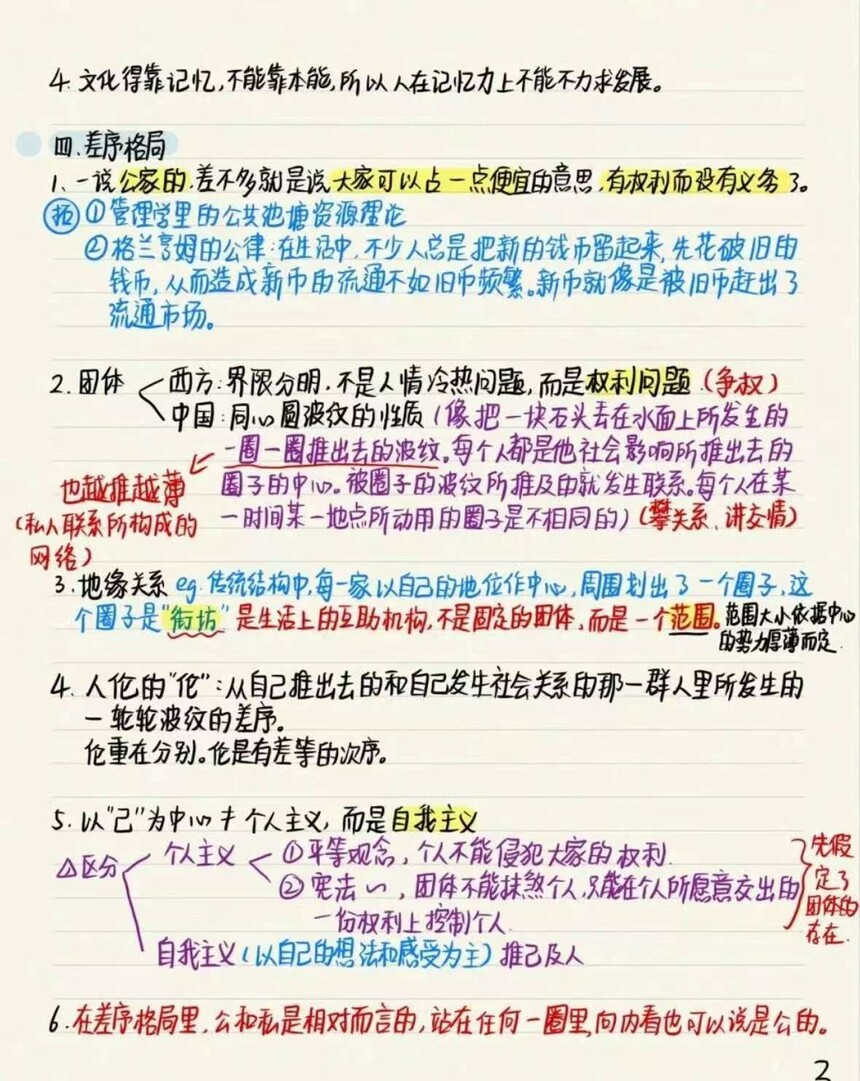 4. 文化得靠记忆,不能靠本能,所以人在记忆力上不能不力求发展。
四.差序格局
1、一说公家的,差不多就是说大家可以占一点便宜的意思,有权利而没有义务了。
拓 ①管理学里的公共池塘资源理论
②格兰亨姆的公律:在生活中,不少人总是把新的钱币留起来,先花破旧的
钱币,从而造成新币的流通不如旧币频繁。新币就像是被旧币赶出了
流通市场。
2. 团体
西方:界限分明,不是人情冷热问题,而是权利问题(争权)
中国:同心圆波纹的性质(像把一块石头丢在水面上所发生的
一圈一圈推出去的波纹。每个人都是他社会影响所推出去的
圈子的中心。被圈子的波纹所推及的就发生联系。每个人在某
一时间某一地点所动用的圈子是不相同的)(攀关系、讲交情)
也越推越薄
(私人联系所构成的
网络)
3.地缘关系 eg.传统结构中,每一家以自己的地位作中心,周围划出了一个圈子,这
个圈子是"街坊"是生活上的互助机构,不是固定的团体,而是一个范围。
范围大小依据中心
的势力厚薄而定.
4. 人伦的"伦":从自己推出去的和自己发生社会关系的那一群人里所发生的
一轮轮波纹的差序。
伦重在分别。伦是有差等的次序。
5. 以"己"为中心≠个人主义,而是自我主义
△区分
个人主义
①平等观念,个人不能侵犯大家的权利.
②宪法~,团体不能抹煞个人,只能在个人所愿意交出的
一份权利上控制个人.
先假
定了
团体的
存在.
自我主义(以自己的想法和感受为主)推己及人
6.在差序格局里,公和私是相对而言的,站在任何一圈里,向内看也可以说是公的。
2